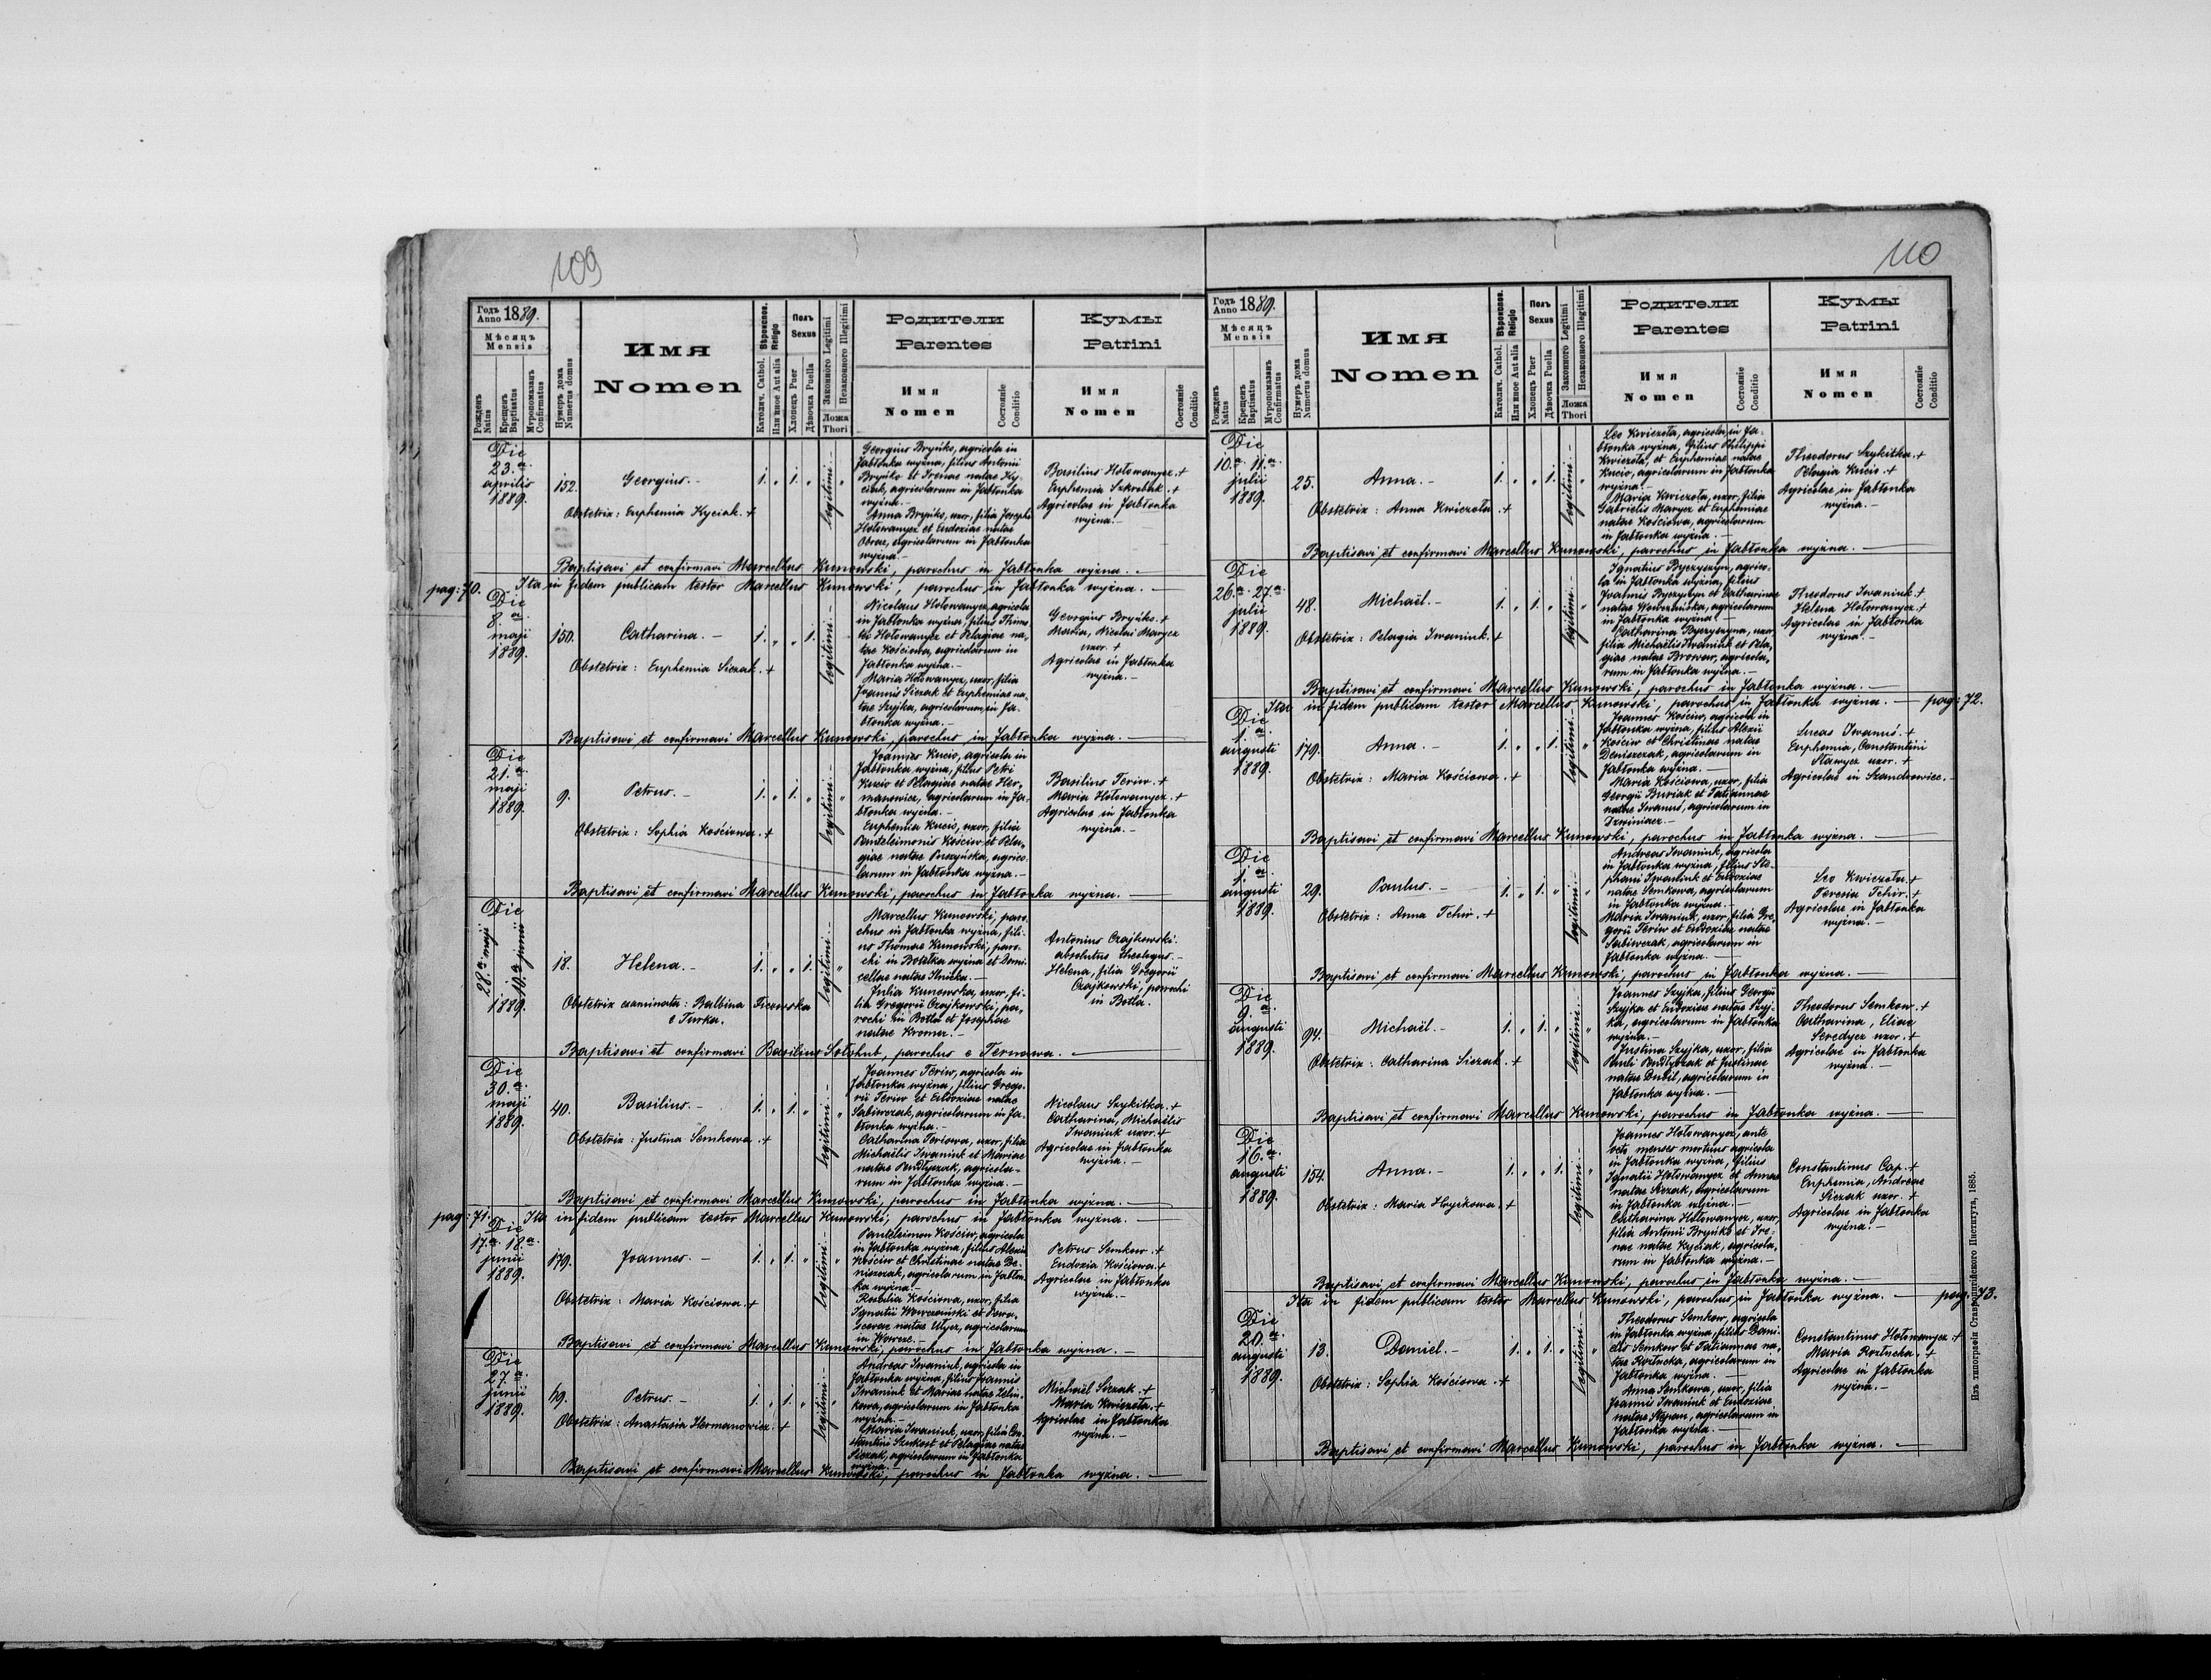 109
Годъ Anno 1889.
Мѣсяцъ
Mensis
Рожденъ Natus
Крещенъ Baptisatus
Мѵропомазанъ Confirmatus
Нумеръ дома Numerus domus
Имя
Nomen
Вѣроиспов. Religio
Католич. Cathol.
Или иное Aut alia
Полъ
Sexus
Хлопецъ Puer
Дѣвочка Puella
Законного Legitimi
Незаконного Illegitimi
Ложа
Thori
Родители
Parentes
Имя
Nomen
Состояніе Conditio
Кумы
Patrini
Имя
Nomen
Состояніе Conditio
Die
23.a
aprilis
1889.
152.
Georgius. -
1. „ 1. „ legitimi. - „
Georgius Bryńko, agricola in
Jabłonka wyżna, filius Antonii
Bryńko et Irenae natae Ky-
ciak, agricolarum in Jabłonka
wyżna. -
Anna Bryńko, uxor, filia Josephi
Hołowanycz et Eudoxiae natae
Obraz, agricolarum in Jabłonka
wyżna. -
Basilius Hołowanycz. +
Euphemia Szkrobak. +
Agricolae in Jabłonka
wyżna. -
Obstetrix: Euphemia Kyciak. +
Baptisavi et confirmavi Marcellus Kunowski, parochus in Jabłonka wyżna. -
pag: 70. Ita in fidem publicam testor Marcellus Kunowski, parochus in Jabłonka wyżna. -
Die
8.a
maji
1889.
150.
Catharina. -
1. „ „ 1. legitimi. - „
Nicolaus Hołowanycz, agricola
in Jabłonka wyżna, filius Thimo-
tei Hołowanycz et Pelagiae na-
tae Kościowa, agricolarum in
Jabłonka wyżna. -
Maria Hołowanycz, uxor, filia
Joannis Siczak et Euphemiae na-
tae Szyjka, agricolarum in Ja-
błonka wyżna. -
Georgius Bryńko. +
Maria, Nicolai Marycz
uxor. +
Agricolae in Jabłonka
wyżna. -
Obstetrix: Euphemia Siczak. +
Baptisavi et confirmavi Marcellus Kunowski, parochus in Jabłonka wyżna. -
Die
21.a
maji
1889.
9.
Petrus. -
1. „ 1. „ legitimi. - „
Joannes Kucio, agricola in
Jabłonka wyżna, filius Petri
Kucio et Pelagiae natae Her-
manowicz, agricolarum in Ja-
błonka wyżna. -
Euphemia Kucio, uxor, filia
Panteleimonis Kościw et Pela-
giae natae Puszyńska, agrico-
larum in Jabłonka wyżna. -
Basilius Teriw. +
Maria Hołowanycz. +
Agricolae in Jabłonka
wyżna. -
Obstetrix: Sophia Kościowa. +
Baptisavi et confirmavi Marcellus Kunowski, parochus in Jabłonka wyżna. -
Die
28.a maji 10.a junii
1889.
18.
Helena. -
1. „ „ 1. legitimi. - „
Marcellus Kunowski, paro-
chus in Jabłonka wyżna, fili-
us Thomae Kunowski, paro-
chi in wyżna et Domi-
cellae natae Ilnicka. -
Julia Kunowska, uxor, fi-
lia Gregorii Czajkowski, pa-
rochi in Botla et Josephae
natae Kromer. -
Antonius Czajkowski.
absolutus theologus. -
Helena, filia Gregorii
Czajkowski, parochi
in Botla.
Obstetrix examinata: Balbina Ticowska
e Turka.
Baptisavi et confirmavi Basilius Sołohub, parochus e Ternawa. -
Die
30.a
maji
1889.
40.
Basilius. -
1. „ 1. „ legitimi. - „
Joannes Teriw, agricola in
Jabłonka wyżna, filius Grego-
rii Teriw et Eudoxiae natae
Sabiwczak, agricolarum in Ja-
błonka wyżna. -
Catharina Teriowa, uxor, filia
Michaëlis Iwaniuk et Mariae
natae Pandłyczak, agricola-
rum in Jabłonka wyżna. -
Nicolaus Szykitka. +
Catharina, Michaëlis
Iwaniuk uxor. +
Agricolae in Jabłonka
wyżna. -
Obstetrix: Justina Semkowa. +
Baptisavi et confirmavi Marcellus Kunowski, parochus in Jabłonka wyżna. -
pag: 71. Ita in fidem publicam testor Marcellus Kunowski, parochus in Jabłonka wyżna. -
Die
17.a 18.a
junii
1889.
179.
Joannes. -
1. „ 1. „ legitimi. - „
Panteleimon Kościw, agricola
in Jabłonka wyżna, filius Alexii
Kościw et Christinae natae De-
niszczak, agricolarum in Jabłon-
ka wyżna. -
Rosalia Kościowa, uxor, filia
Ignatii et Para-
scevae natae Ułycz, agricolarum
in -
Petrus Semkow. +
Eudoxia Kościowa. +
Agricolae in Jabłonka
wyżna. -
Obstetrix: Maria Kościowa. +
Baptisavi et confirmavi Marcellus Kunowski, parochus in Jabłonka wyżna. -
Die
27.a
junii
1889.
69.
Petrus. -
1. „ 1. „ legitimi. - „
Andreas Iwaniuk, agricola in
Jabłonka wyżna, filius Joannis
Iwaniuk et Mariae natae Zelin-
kowa, agricolarum in Jabłonka
wyżna. -
Maria Iwaniuk, uxor, filia Con-
stantini et Pelagiae natae
Siczak, agricolarum in Jabłonka
wyżna. -
Michaël Siczak. +
Maria Kwiczoła. +
Agricolae in Jabłonka
wyżna. -
Obstetrix: Anastasia Hermanowicz. +
Baptisavi et confirmavi Marcellus Kunowski, parochus in Jabłonka wyżna. -
110
Годъ Anno 1889.
Мѣсяцъ
Mensis
Рожденъ Natus
Крещенъ Baptisatus
Мѵропомазанъ Confirmatus
Нумеръ дома Numerus domus
Имя
Nomen
Вѣроиспов. Religio
Католич. Cathol.
Или иное Aut alia
Полъ
Sexus
Хлопецъ Puer
Дѣвочка Puella
Законного Legitimi
Незаконного Illegitimi
Ложа
Thori
Родители
Parentes
Имя
Nomen
Состояніе Conditio
Кумы
Patrini
Имя
Nomen
Состояніе Conditio
Die
10.a 11.a
julii
1889.
25.
Anna. -
1. „ „ 1. legitimi. - „
Leo Kwiczoła, agricola in Ja-
błonka wyżna, filius Philippi
Kwiczoła, et Euphemiae natae
Kucio, agricolarum in Jabłonka
wyżna. -
Maria Kwiczoła, uxor, filia
Gabrielis Marycz et Euphemiae
natae Kościowa, agricolarum
in Jabłonka wyżna. -
Theodorus Szykitka. +
Pelagia Kucio. +
Agricolae in Jabłonka
wyżna. -
Obstetrix: Anna Kwiczoła. +
Baptisavi et confirmavi Marcellus Kunowski, parochus in Jabłonka wyżna. -
Die
26.a 27.a
julii
1889.
48.
Michaël. -
1. „ 1. „ legitimi. - „
Ignatius Byczyszyn, agrico-
la in Jabłonka wyżna, filius
Joannis Byczyszyn et Catharinae
natae agricolarum
in Jabłonka wyżna. -
Catharina Byczyszyna, uxor,
filia Michaëlis Iwaniuk et Pela-
giae natae Browar, agricola-
rum in Jabłonka wyżna. -
Theodorus Iwaniuk. +
Helena Hołowanycz. +
Agricolae in Jabłonka
wyżna. -
Obstetrix: Pelagia Iwaniuk. +
Baptisavi et confirmavi Marcellus Kunowski, parochus in Jabłonka wyżna. -
Ita in fidem publicam testor Marcellus Kunowski, parochus in Jabłonka wyżna. - pag: 72.
Die
1.a
augusti
1889.
179.
Anna. -
1. „ „ 1. legitimi. - „
Joannes Kościw, agricola in
Jabłonka wyżna, filius Alexii
Kościw et Christinae natae
Deniszczak, agricolarum in
Jabłonka wyżna. -
Maria Kościowa, uxor, filia
Georgii Buriak et Tatiannae
natae Iwanuś, agricolarum in
Dzwiniacz. -
Lucas Iwanuś. +
Euphemia, Constantini
Stawycz uxor. +
Agricolae in Szandrowiec. -
Obstetrix: Maria Kościowa. +
Baptisavi et confirmavi Marcellus Kunowski, parochus in Jabłonka wyżna. -
Die
1.a
augusti
1889.
29.
Paulus. -
1. „ 1. „ legitimi. - „
Andreas Iwaniuk, agricola
in Jabłonka wyżna, filius Ste-
phani Iwaniuk et Eudoxiae
natae Semkowa, agricolarum
in Jabłonka wyżna. -
Maria Iwaniuk, uxor, filia Gre-
gorii Teriw et Eudoxiae natae
Sabiwczak, agricolarum in
Jabłonka wyżna. -
Leo Kwiczoła. +
Teresia Tchir. +
Agricolae in Jabłonka
wyżna. -
Obstetrix: Anna Tchir. +
Baptisavi et confirmavi Marcellus Kunowski, parochus in Jabłonka wyżna. -
Die
9.a
augusti
1889.
94.
Michaël. -
1. „ 1. „ legitimi. - „
Joannes Szyjka, filius Georgii
Szyjka et Eudoxiae natae Szyj-
ka, agricolarum in Jabłonka
wyżna. -
Justina Szyjka, uxor, filia
Pauli Pandłyczak et Justinae
natae Dubil, agricolarum in
Jabłonka wyżna. -
Theodorus Semkow. +
Catharina, Eliae
Seredycz uxor. +
Agricolae in Jabłonka
wyżna. -
Obstetrix: Catharina Siczak. +
Baptisavi et confirmavi Marcellus Kunowski, parochus in Jabłonka wyżna. -
Die
16.a
augusti
1889.
154.
Anna. -
1. „ „ 1. legitimi. - „
Joannes Hołowanycz, ante
octo menses mortuus agricola
in Jabłonka wyżna, filius
Ignatii Hołowanycz et Annae
natae Siczak, agricolarum
in Jabłonka wyżna. -
Catharina Hołowanycz, uxor,
filia Antonii Bryńko et Ire-
nae natae Kyciak, agricola-
rum in Jabłonka wyżna. -
Constantinus Cap. +
Euphemia, Andreae
Siczak uxor. +
Agricolae in Jabłonka
wyżna. -
Obstetrix: Maria Hryckowa. +
Baptisavi et confirmavi Marcellus Kunowski, parochus in Jabłonka wyżna. -
Ita in fidem publicam testor Marcellus Kunowski, parochus in Jabłonka wyżna. - pag: 73.
Die
20.a
augusti
1889.
13.
Daniel. -
1. „ 1. „ legitimi. - „
Theodorus Semkow, agricola
in Jabłonka wyżna, filius Dani-
elis Semkow et Tatiannae na-
tae Rozłucka, agricolarum in
Jabłonka wyżna. -
Anna Semkowa, uxor, filia
Joannis Iwaniuk et Eudoxiae
natae Stepan, agricolarum in
Jabłonka wyżna. -
Constantinus Hołowanycz. +
Maria Rozłucka. +
Agricolae in Jabłonka
wyżna. -
Obstetrix: Sophia Kościowa. +
Baptisavi et confirmavi Marcellus Kunowski, parochus in Jabłonka wyżna. -
Изъ типографіи Ставропигійского Института, 1885.